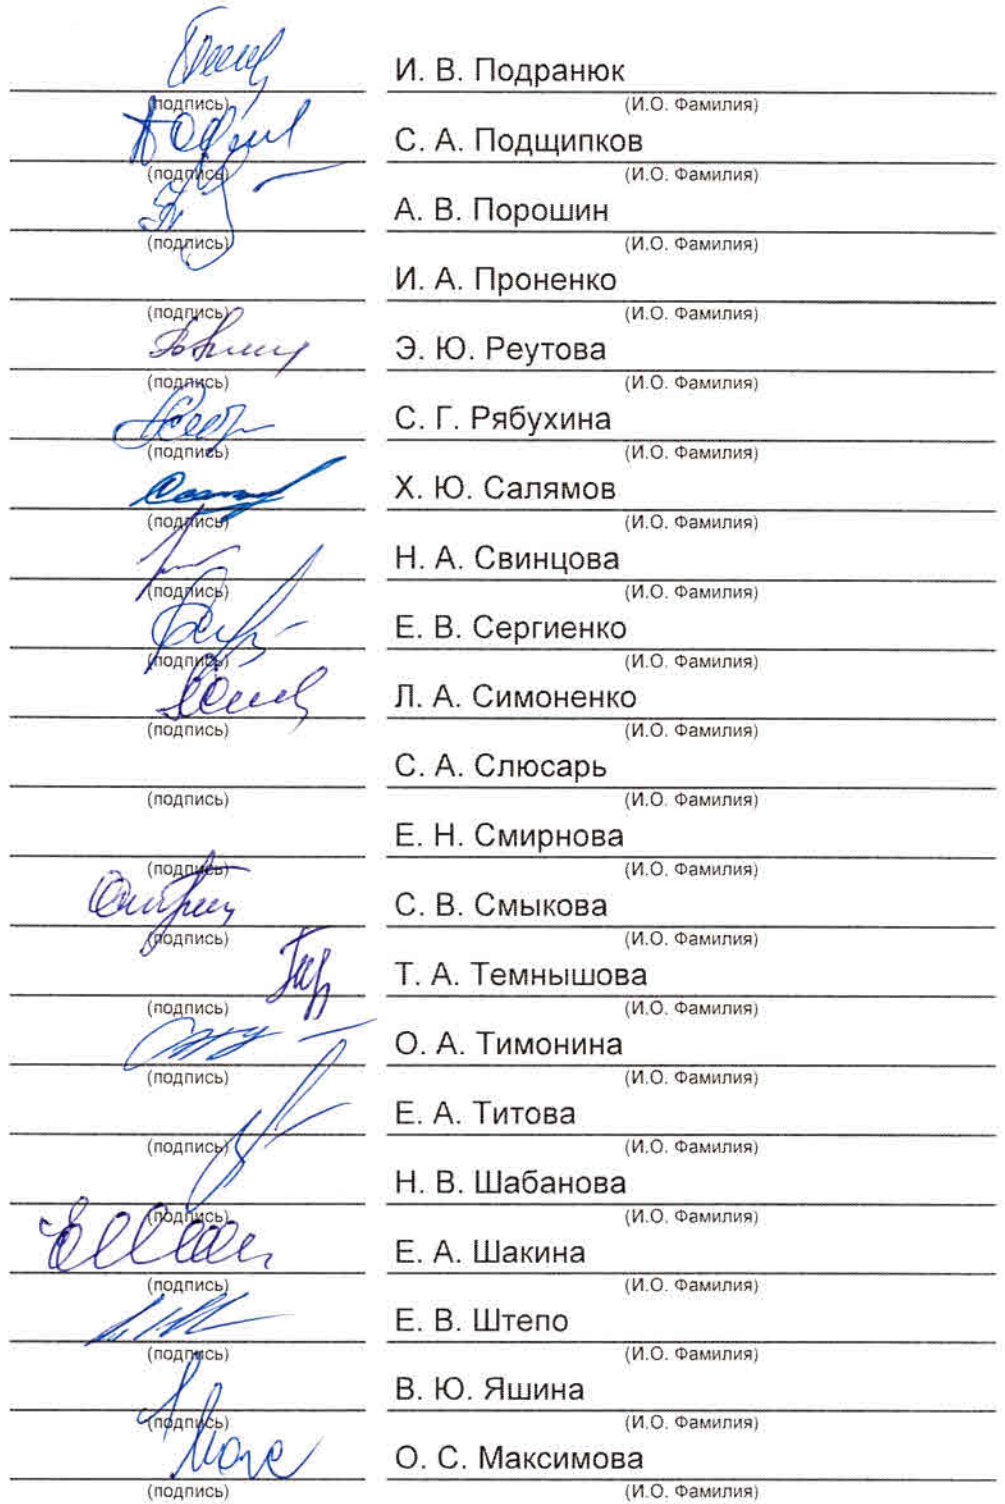 И. В. Подранюк
(подпись) (И.О. Фамилия)
С. А. Подщипков
(подпись) (И.О. Фамилия)
А. В. Порошин
(подпись) (И.О. Фамилия)
И. А. Проненко
(подпись) (И.О. Фамилия)
Э. Ю. Реутова
(подпись) (И.О. Фамилия)
С. Г. Рябухина
(подпись) (И.О. Фамилия)
Х. Ю. Салямов
(подпись) (И.О. Фамилия)
Н. А. Свинцова
(подпись) (И.О. Фамилия)
Е. В. Сергиенко
(подпись) (И.О. Фамилия)
Л. А. Симоненко
(подпись) (И.О. Фамилия)
С. А. Слюсарь
(подпись) (И.О. Фамилия)
Е. Н. Смирнова
(подпись) (И.О. Фамилия)
С. В. Смыкова
(подпись) (И.О. Фамилия)
Т. А. Темнышова
(подпись) (И.О. Фамилия)
О. А. Тимонина
(подпись) (И.О. Фамилия)
Е. А. Титова
(подпись) (И.О. Фамилия)
Н. В. Шабанова
(подпись) (И.О. Фамилия)
Е. А. Шакина
(подпись) (И.О. Фамилия)
Е. В. Штепо
(подпись) (И.О. Фамилия)
В. Ю. Яшина
(подпись) (И.О. Фамилия)
О. С. Максимова
(подпись) (И.О. Фамилия)